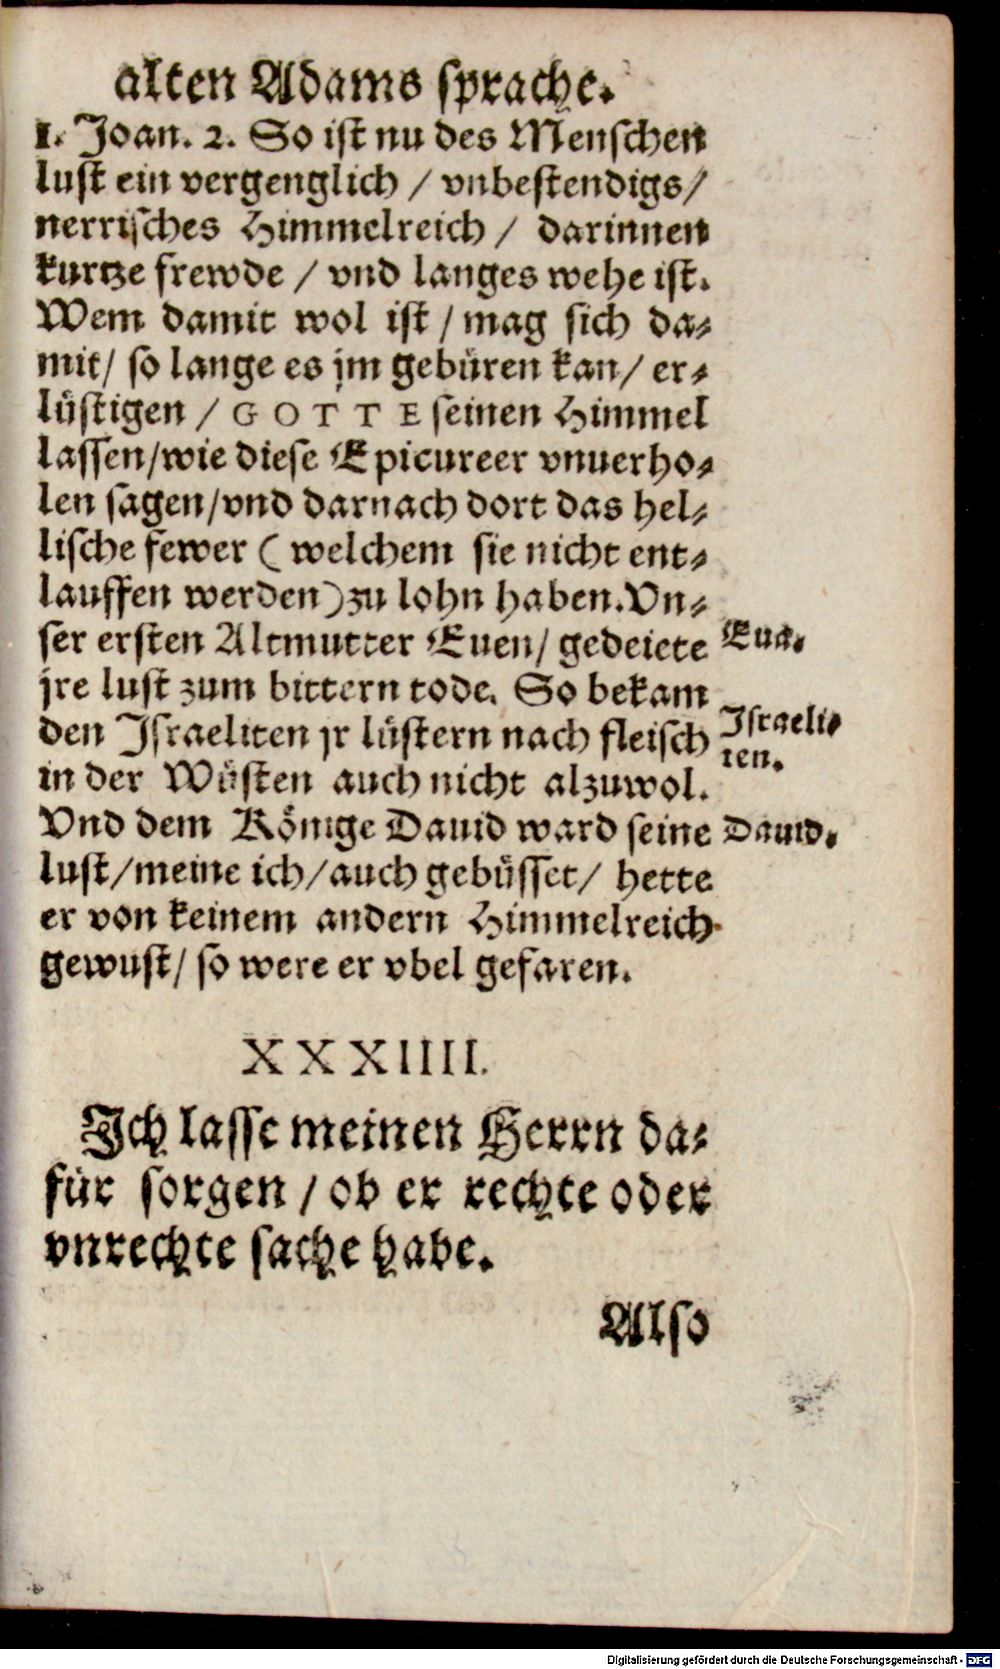 alten Adams sprache.
1. Joan. 2. So ist nu des Menschen
lust ein vergenglich / vnbestendigs/
nerrisches Himmelreich / darinnen
kurtze frewde / vnd langes wehe ist.
Wem damit wol ist / mag sich da⸗
mit/ so lange es jm gebüren kan/ er⸗
lüstigen / GOTTE seinen Himmel
lassen/wie diese Epicureer vnuerho⸗
len sagen/vnd darnach dort das hel⸗
lische fewer ( welchem sie nicht ent⸗
lauffen werden) zu lohn haben. Vn⸗
ser ersten Altmutter Euen/ gedeiete
Eua.
jre lust zum bittern tode. So bekam
den Israeliten jr lüstern nach fleisch
Israeli⸗
ten.
in der Wüsten auch nicht alzuwol.
Vnd dem Könige Dauid ward seine
Dauid.
lust/meine ich/auch gebüsset/ hette
er von keinem andern Himmelreich
gewust/ so were er vbel gefaren.
XXXIIII.
Ich lasse meinen Herrn da⸗
für sorgen / ob er rechte oder
vnrechte sache habe.
Also
Digitalisierung gefördert durch die Deutsche Forschungsgemeinschaft - DFG